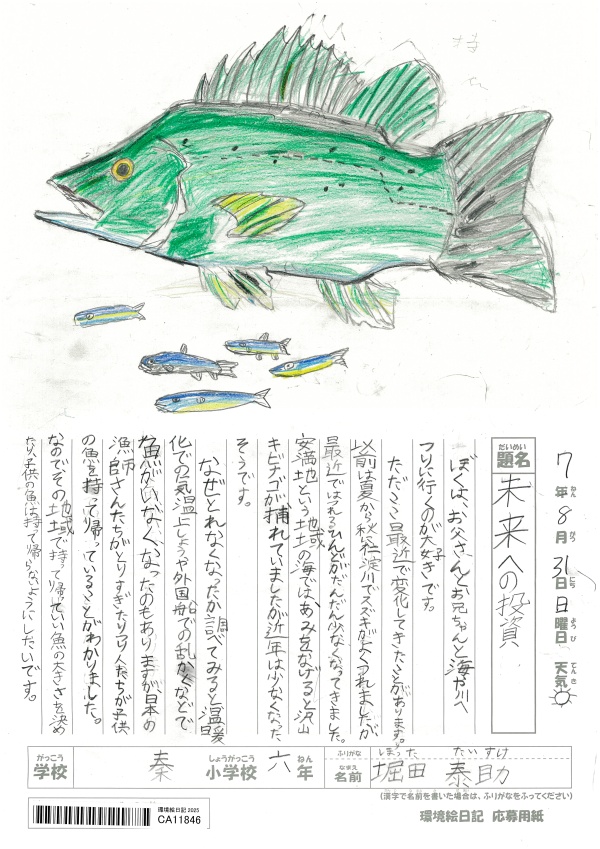 7年8月31日日曜日 天気
ねん がつ にち ようび てんき
だいめい
題名
未来への投資
ぼくは、お父さんとお兄ちゃんと海や川へ
つりに行くのが大好きです。
ただここ最近で変化してきたことがあります。
以前は夏から秋に仁淀川でスズキがよくつれましたが
最近ではつれるひんどがだんだん少なくなってきました。
安満地という地域の海ではあみをなげると沢山
キビナゴが捕れていましたが近年は少なくなった
そうです。
なぜとれなくなったか調べてみると温暖
化での気温上しょうや外国船での乱かくなどで
魚がいなくなったのもありますが、日本の
漁師さんたちがとりすぎたりつり人たちが子供
の魚を持って帰っていることがわかりました。
なのでその地域で持って帰っていい魚の大きさを決め
たり、子供の魚は持って帰らないようにしたいです。
がっこう
学校
秦
しょうがっこう
小学校
六
ねん
年
ふりがな
ほった たいすけ
なまえ
名前
堀田 泰助
(漢字で名前を書いた場合は、ふりがなをふってください)
環境絵日記 2025
CA11846
環境絵日記 応募用紙